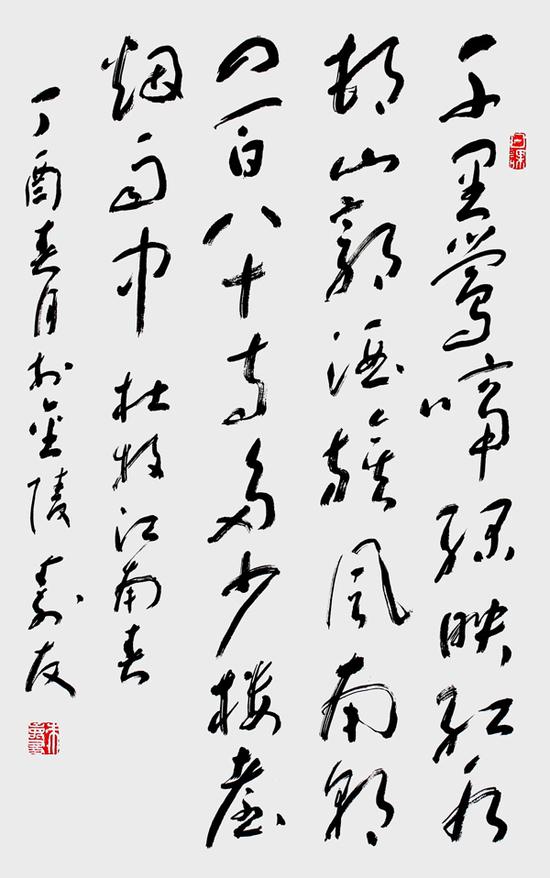 千里莺啼绿映红水
村山郭酒旗风南朝
四百八十寺多少楼台
烟雨中 杜牧江南春
丁酉春月于金陵 嘉友